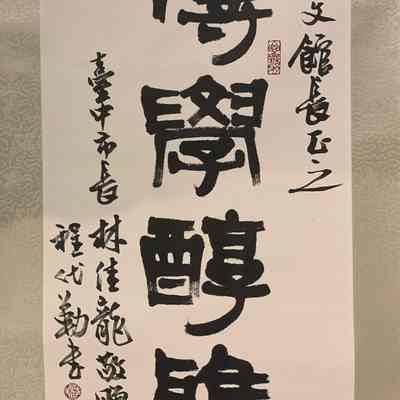 文館長正之
學醇
臺中市長 林佳龍敬題
程代勒書